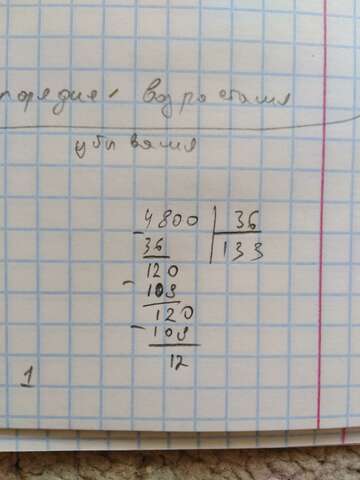 порядке возрастания
убывания
- 4800 | 36
36 | 133
120
- 108
120
- 108
12
1